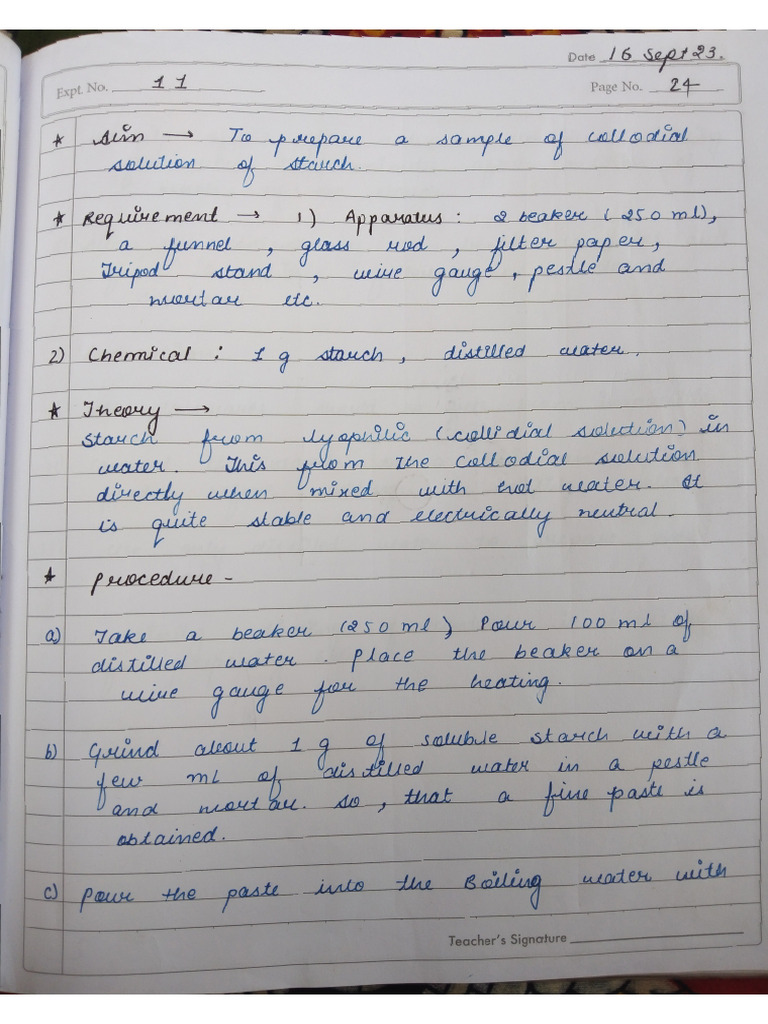 Date 16 Sept 23.
Expt. No. 11 Page No. 24
* Aim → To prepare a sample of collodial
solution of starch.
* Requirement → 1) Apparatus : 2 beaker (250 ml),
a funnel , glass rod , filter paper,
Tripod stand , wire gauge , pestle and
mortar etc.
2) Chemical : 1 g starch , distilled water.
* Theory →
Starch from lyophilic (collidial solution) in
water. This from the collodial solution
directly when mixed with hot water. It
is quite stable and electrically neutral.
* Procedure -
a) Take a beaker (250 ml) Pour 100 ml of
distilled water. Place the beaker on a
wire gauge for the heating.
b) Grind about 1 g of soluble starch with a
few ml of distilled water in a pestle
and mortar. so , that a fine paste is
obtained.
c) Pour the paste into the Boiling water with
Teacher's Signature